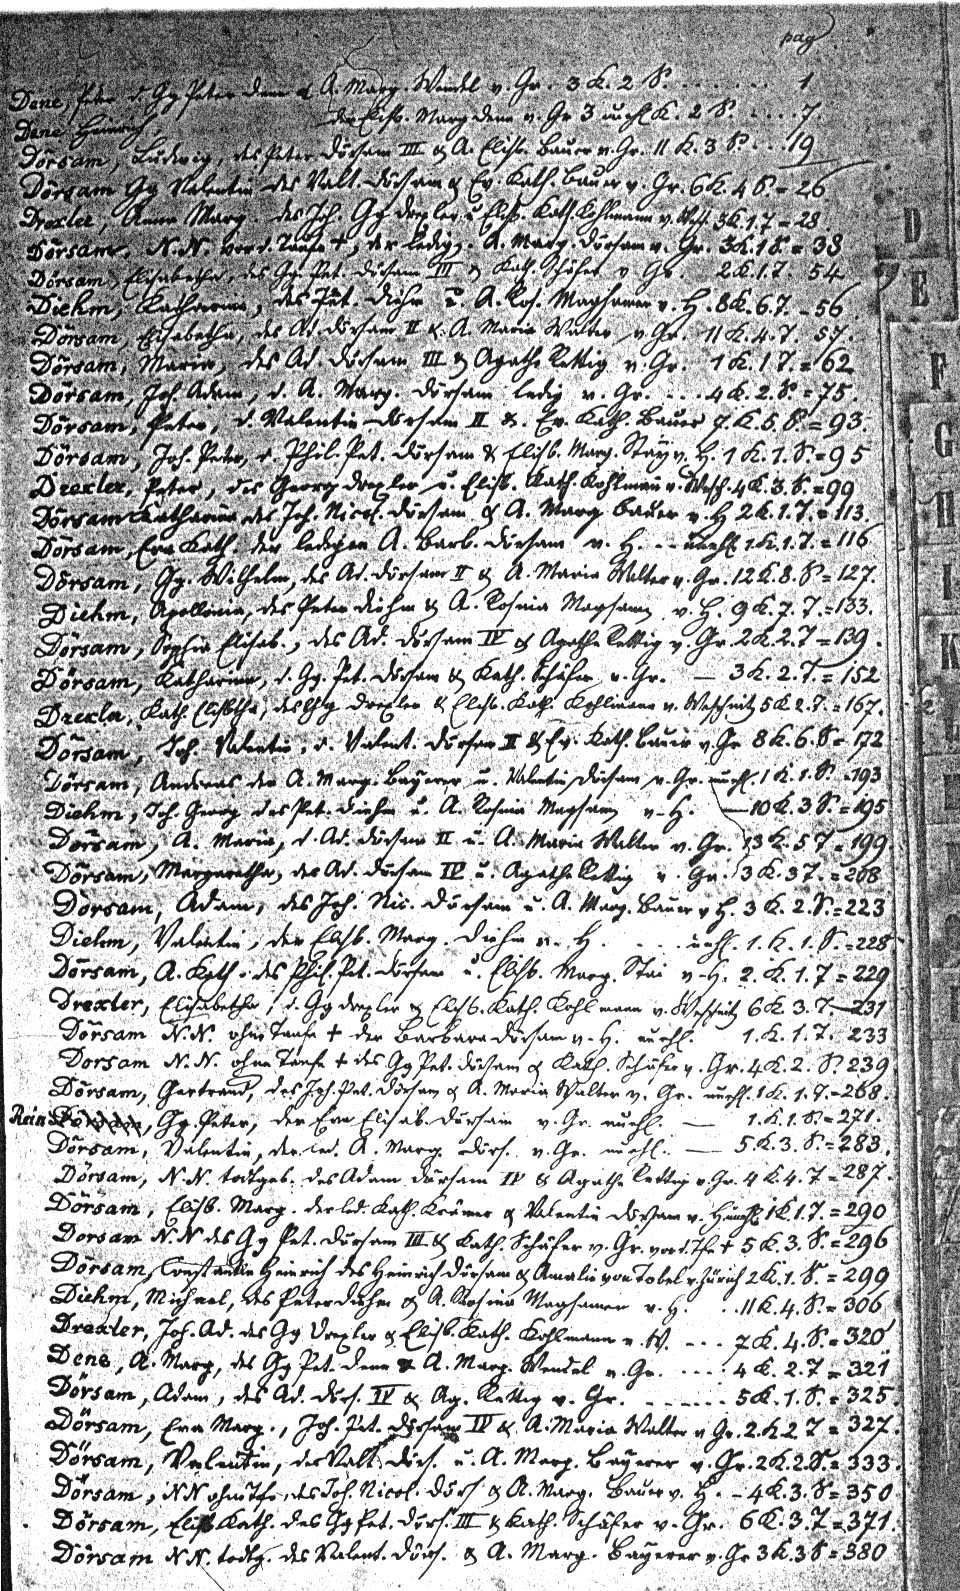 pag
Dene, Peter d. Gg Peter Dene & A. Marg. Wendel v. Gr. 3 K. 2 S. . . . . . . 1
Dene Heinrich, der Elisb. Marg Dene v. Gr 3 unehl K. 2 S. . . . 7.
Dörsam, Ludwig, des Peter Dörsam III & A. Elisb. Bauer v. Gr. 11 K. 3 S. . . 19
Dörsam Gg Valentin des Valt. Dörsam & Ev. Kath. Bauer v. Gr. 6 K. 4 S. = 26
Drexler, Anna Marg. des Joh. Gg Drexler u Elisb. Kath. Kohlmann v. Wesch. 3K.1.T = 28
Dörsam, N.N. vor d. Taufe †, der ledig. A. Marg. Dörsam v. Gr. 3K.1S. = 33
Dörsam, Elisabetha, des Gg. Pet. Dörsam III & Kath. Schäfer v Gr. 2 K.1.T. 54
Diehm, Katharina, des Pet. Diehm u. A. Ros. Magsamer v. H. 8 K. 6. T. - 56
Dörsam, Elisabetha, des Ad. Dörsam II & A. Maria Walter v Gr. 11 K. 4. T. 57.
Dörsam, Maria, des Ad. Dörsam III & Agatha Rettig v. Gr. 1 K. 1 T. = 62
Dörsam, Joh. Adam, d. A. Marg. Dörsam ledig v. Gr. . . . 4 K. 2. S. = 75.
Dörsam, Peter, d. Valentin Dörsam II & Ev. Kath. Bauer 7 K. 5. S. = 93.
Dörsam, Joh. Peter, d. Phil. Pet. Dörsam & Elisb. Marg. Stay v. H. 1 K. 1. S. = 95
Drexler, Peter, des Georg Drexler u. Elisb. Kath. Kohlmann v. Wesch. 4 K. 3. S. = 99
Dörsam Katharina des Joh. Nicol. Dörsam & A. Marg Bauer v. H 2 K. 1. T. = 113.
Dörsam, Eva Kath. der ledigen A. Barb. Dörsam v. H. . . unehl 1. K. 1. T. = 116
Dörsam, Gg. Wilhelm, des Ad. Dörsam II & A. Maria Walter v. Gr. 12 K. 8. S. = 127.
Diehm, Apollonia, des Peter Diehm & A. Rosina Magsam v. H. 9 K. 7. T. = 133.
Dörsam, Sophia Elisab., des Ad. Dörsam IV & Agatha Rettig v Gr. 2 K. 2. T = 139.
Dörsam, Katharina, d. Gg. Pet. Dörsam & Kath. Schäfer v. Gr. — 3 K. 2. T. = 152
Drexler, Kath Elisbtha, des Gg Drexler & Elisb. Kath. Kohlmann v. Weschnitz 5 K. 2. T. = 167.
Dörsam, Joh. Valentin, d. Valent. Dörsam II & Ev. Kath. Bauer v. Gr 8 K. 6. S = 172
Dörsam, Andreas der A. Marg. Bayerer u. Valentin Dörsam v. Gr. unehl. 1 K. 1. S. = 193
Diehm, Joh. Georg des Pet. Diehm u. A. Rosina Magsam v. H. — 10 K. 3 S = 195
Dörsam, A. Maria, d. Ad. Dörsam II u. A. Maria Walter v. Gr. 13 K. 5 T = 199
Dörsam, Margaretha, des Ad. Dörsam IV u. Agatha Rettig v. Gr. 3 K. 3 T. = 208
Dörsam, Adam, des Joh. Nic. Dörsam u. A. Marg. Bauer v H. 3 K. 2. S. = 223
Diehm, Valentin, der Elisb. Marg. Diehm v. H. . . . unehl. 1. K. 1. S. = 228
Dörsam, A. Kath. des Phil. Pet. Dörsam u. Elisb. Marg. Stai v. H. 2. K. 1. T = 229
Drexler, Elisabetha, d. Gg Drexler & Elisb. Kath. Kohlmann v. Weschnitz 6 K. 3. T. — 231
Dörsam N.N. ohne Taufe † der Barbara Dörsam v. H. unehl. 1. K. 1. T. 233
Dorsam N.N. ohne Taufe † des Gg Pet. Dörsam & Kath. Schäfer v. Gr. 4 K. 2. S. 239
Dörsam, Gertraud, des Joh. Pet. Dörsam & A. Maria Walter v. Gr. unehl. 1 K. 1. T. = 268.
Rein, Gg. Peter, der Eva Elisab. Dörsam v. Gr. unehl. — 1. K. 1. S. = 271.
Dörsam, Valentin, der led. A. Marg. Dörs. v. Gr. unehl. — 5 K. 3. S. = 283.
Dörsam, N.N. todtgeb. des Adam Dörsam IV & Agatha Rettig v. Gr. 4 K. 4. T = 287.
Dörsam, Elisb. Marg. der led. Kath. Krämer & Valentin Dörsam v. H unehl. 1 K. 1. T. = 290
Dörsam N.N des Gg Pet. Dörsam III & Kath. Schäfer v. Gr. vor d. Tfe † 5 K. 3. S. = 296
Dörsam, Constantin Heinrich des Heinrich Dörsam & Amalie von Tobel v. Zürich 2 K. 1. S. = 299
Diehm, Michael, des Peter Diehm & A. Rosina Magsamer v. H. . . 11 K. 4. S. = 306
Drexler, Joh. Ad. des Gg Drexler & Elisb. Kath. Kohlmann v. W. - - - 7 K. 4. S. = 320.
Dene, A. Marg, des Gg Pet. Dene & A. Marg. Wendel v. Gr. - - - - 4 K. 2. T = 321
Dörsam, Adam, des Ad. Dörs. IV & Ag. Rettig v. Gr. - - - - - - 5 K. 1. S. = 325
Dörsam, Eva Marg., Joh. Pet. Dörsam IV & A. Maria Walter v Gr. 2. K 2 T = 327.
Dörsam, Valentin, des Valt. Dörs. u. A. Marg. Bayerer v. Gr. 2 K. 2. S. = 333.
Dörsam, NN ohne Tfe, des Joh. Nicol. Dörs & A. Marg. Bauer v. H. - 4 K. 3. S. = 350
Dörsam, Elisb Kath. des Gg Pet. Dörs. III & Kath. Schäfer v. Gr. 6 K. 3. T = 371.
Dörsam N.N. todtg. des Valent. Dörs. & A. Marg. Bayerer v. Gr 3 K. 3 S = 380
D
E
F
G
H
I
K
L